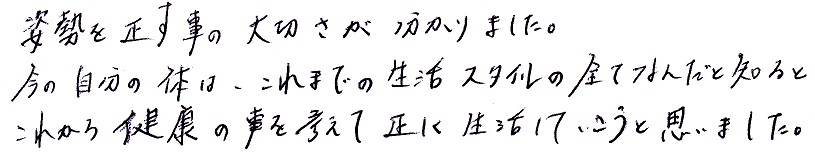 姿勢を正す事の大切さが分かりました。
今の自分の体は、これまでの生活スタイルの全てなんだと知ると
これから健康の事を考えて正しく生活していこうと思いました。